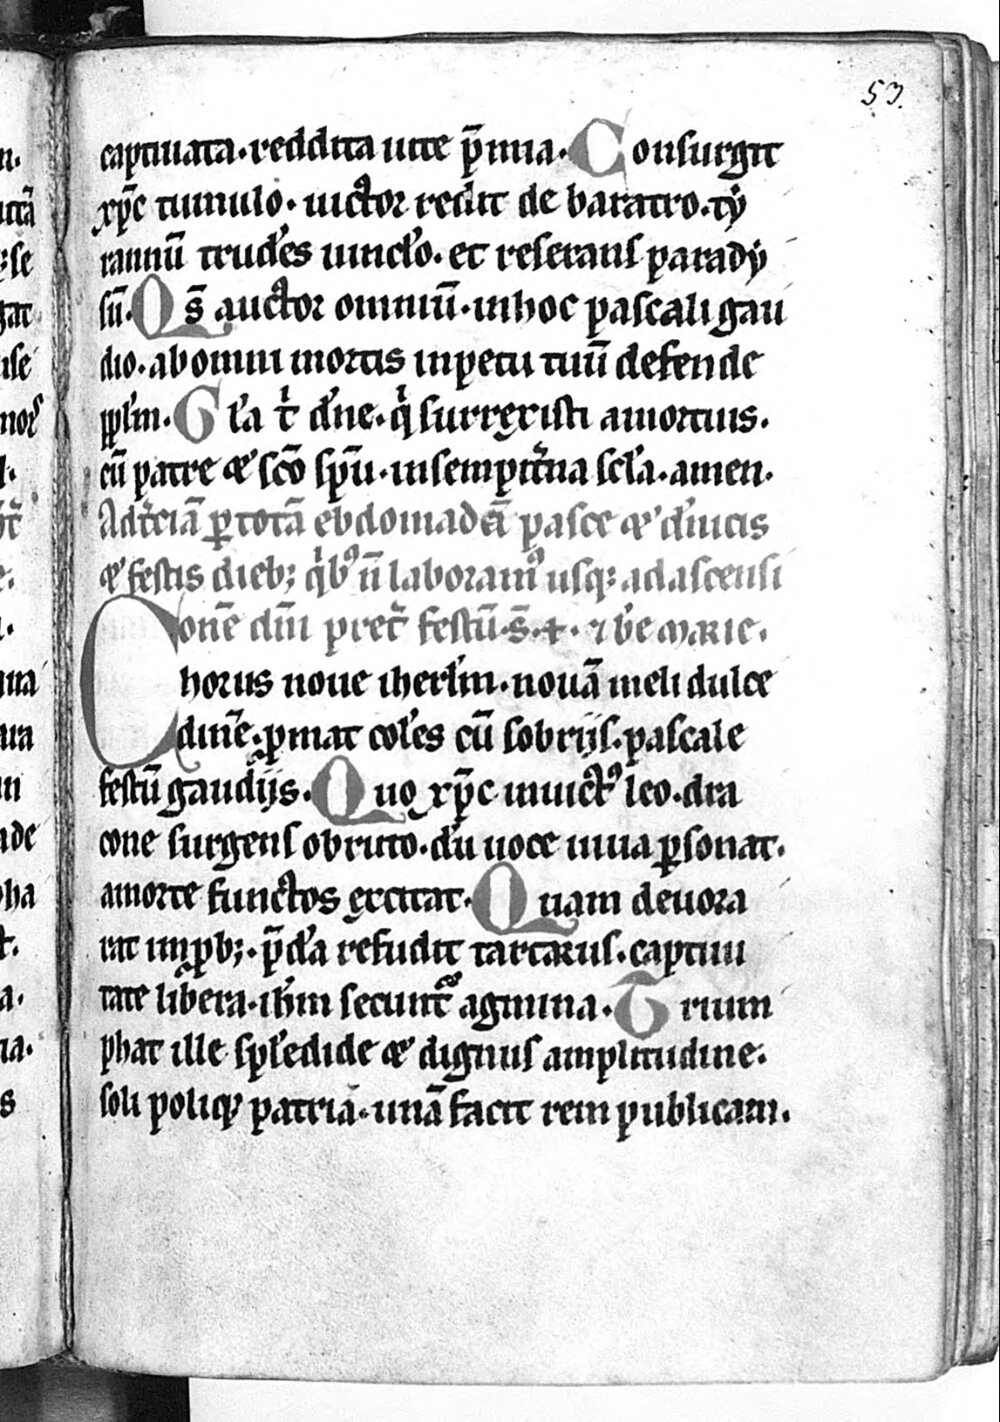 53.
captiuata. reddita uite p̄mia. Consurgit
xp̄c tumulo. uictor redit de baratro. ty
rannū trudēs uinclo. et reserans parady
sū. Qs̄ auctor omniū. inhoc pascali gau
dio. abomni mortis inpetu tuū defende
pplm̄. Gła t͛ dn̄e. q͛ surrexisti amortuis.
cū patre & sc̄o sp̄u. insempit͛na scła. amen.
Adt͛ciā ꝑ totā ebdomadā pasce & dn̄icis
& festis dieb; q͛bꝰ n̄ laboramꝰ usq; adascensi
onē dn̄i pret͛ festū. s̄. +. ⁊ bē marie.
Chorus noue iherłm. nouā meli dulce
dinē. ꝓmat colēs cū sobrijs. pascale
festū gaudijs. Quo xp̄c inuictꝰ leo. dra
cone surgens obruto. dū uoce uiua ꝑsonat.
amorte functos excitat. Quam deuora
rat inpb;. p̄da refudit tartarus. captiui
tate libera. ihm̄ secunt᷑ agmina. Trium
phat ille splēdide & dignus amplitudine.
soli poliqꝫ patriā. unā facit rem publicam.